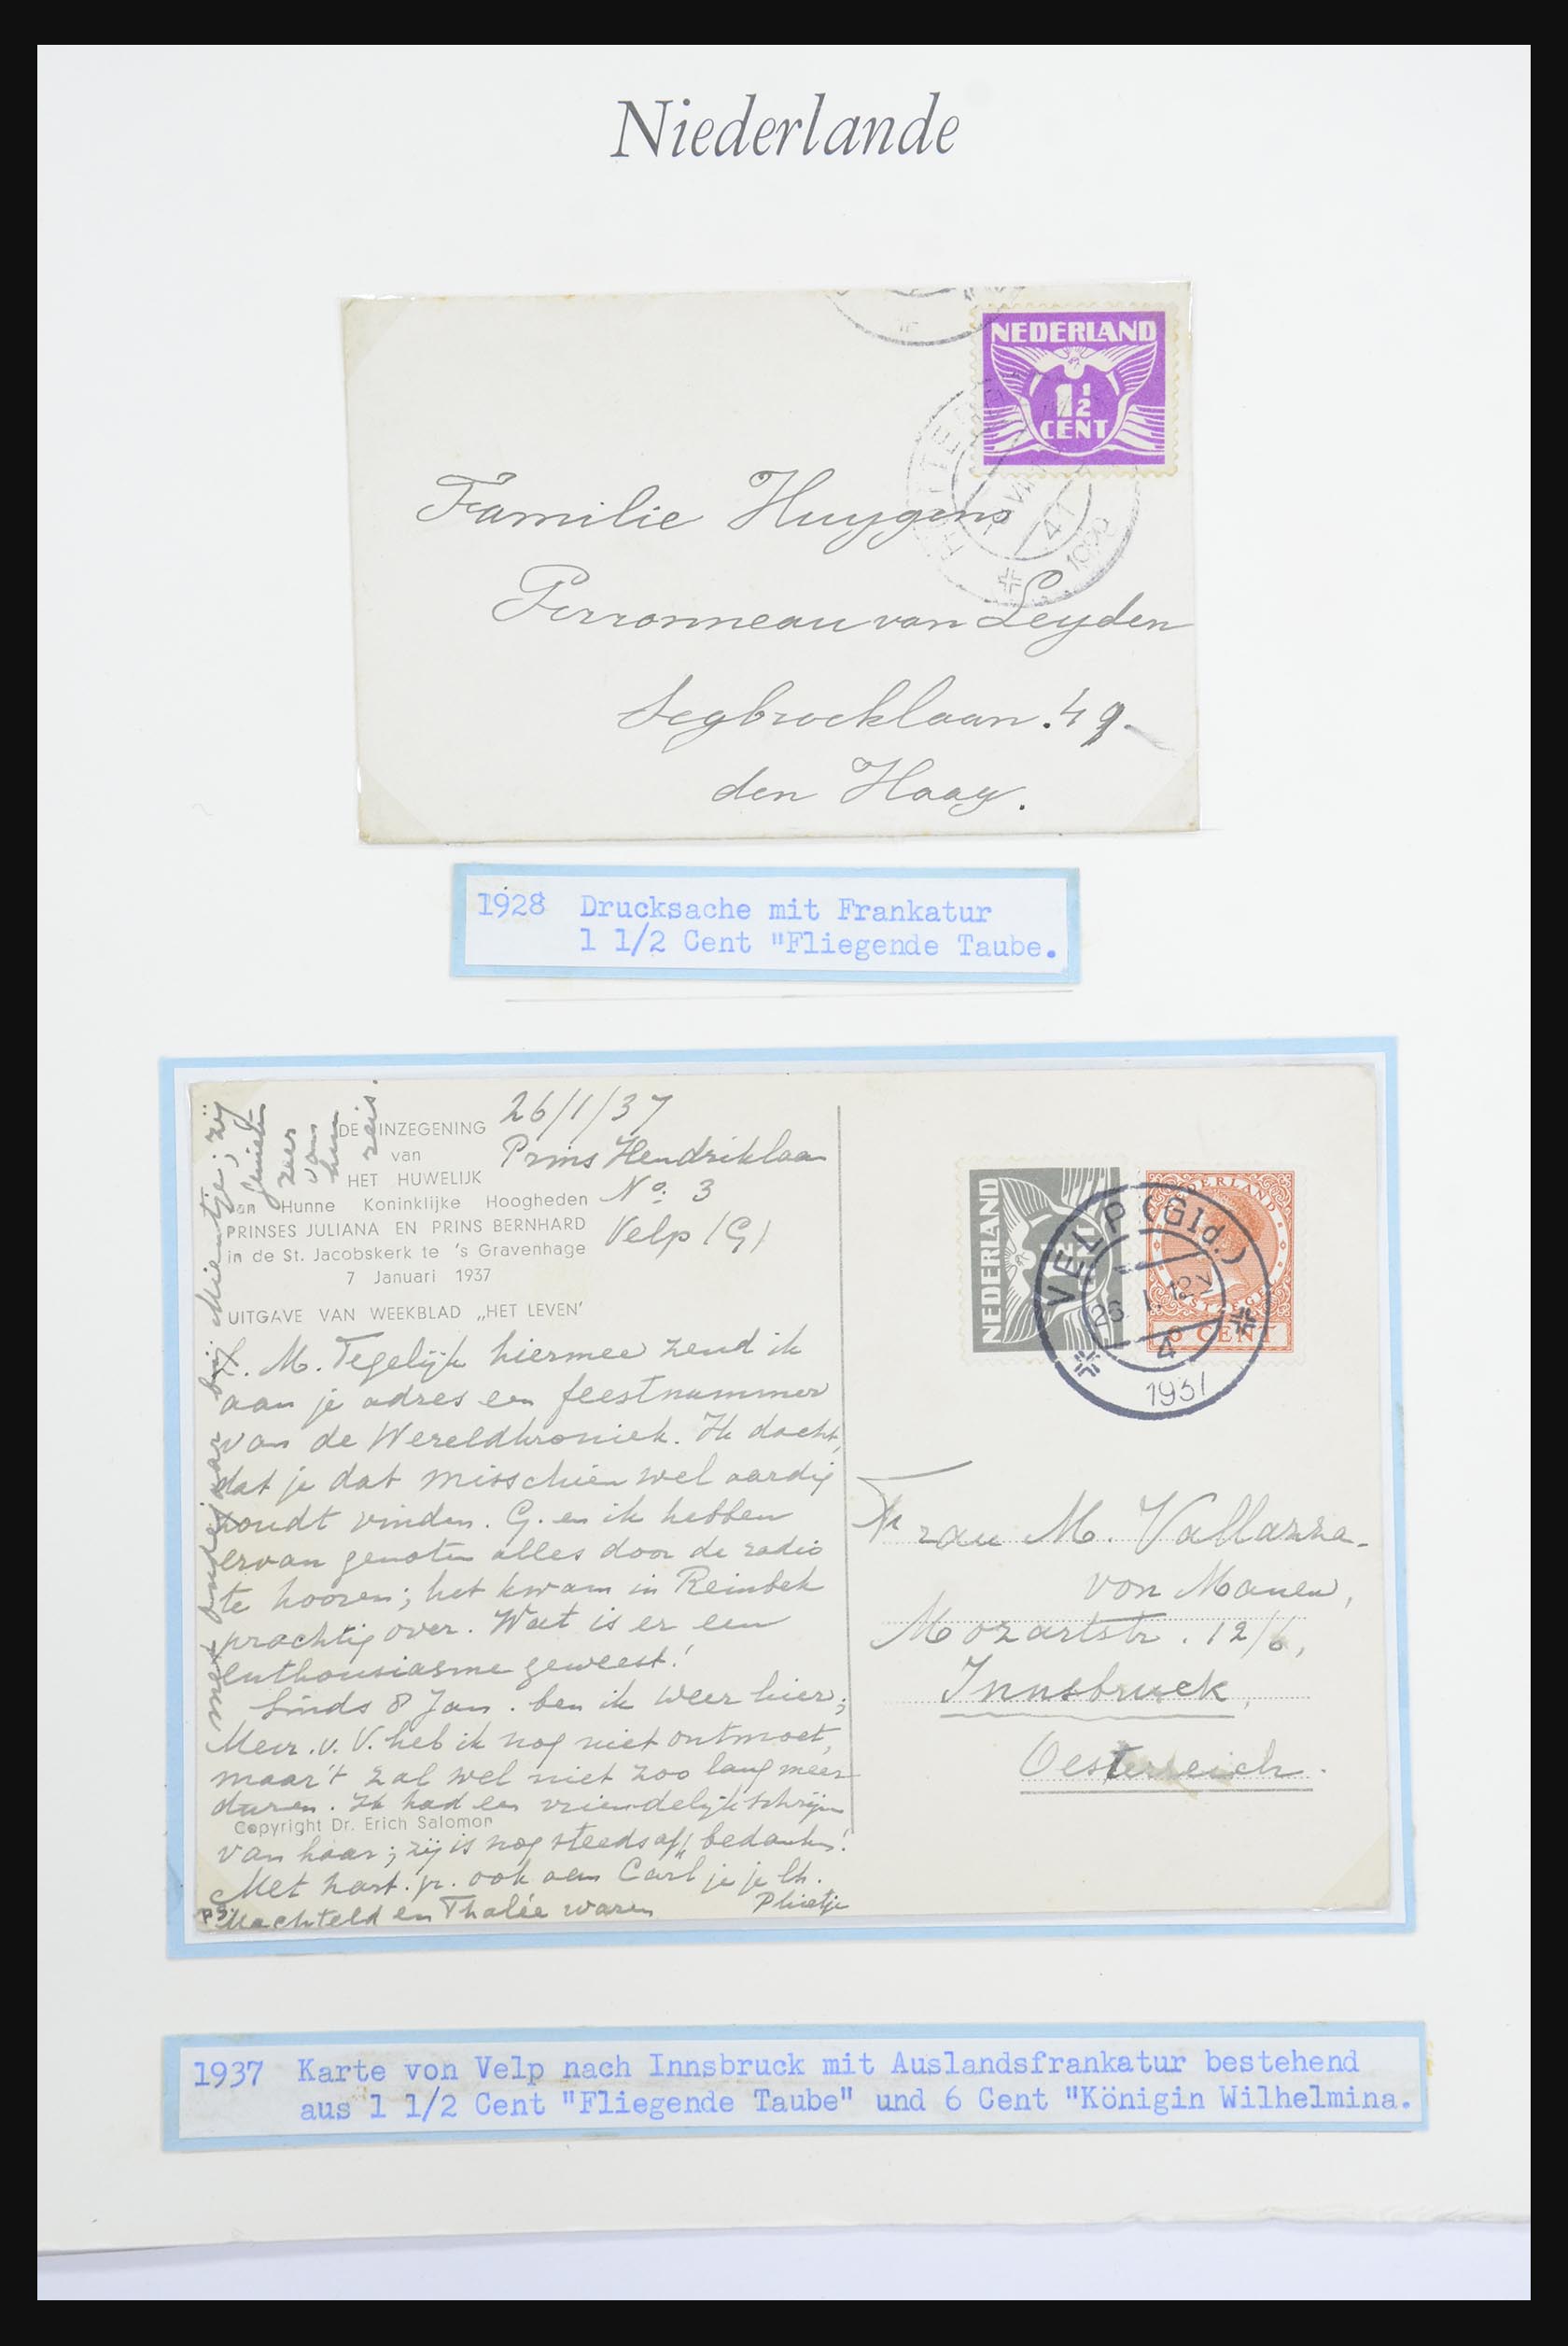 Niederlande
NEDERLAND
1½
CENT
41
Familie Huygens
Perronneau van Leyden
Segbroeklaan. 49-
den Haag.
1928 Drucksache mit Frankatur
1 1/2 Cent "Fliegende Taube.
DE INZEGENING
van
HET HUWELIJK
van Hunne Koninklijke Hoogheden
PRINSES JULIANA EN PRINS BERNHARD
in de St. Jacobskerk te 's Gravenhage
7 Januari 1937
UITGAVE VAN WEEKBLAD „HET LEVEN'
26/1/37
Prins Hendriklaan
No. 3
Velp (G)
L. M. Tegelijk hiermee zend ik
aan je adres een feestnummer
van de Wereldkroniek. Ik dacht,
dat je dat misschien wel aardig
zoudt vinden. G. en ik hebben
ervan genoten alles door de radio
te hooren; het kwam in Reinbek
prachtig over. Wat is er een
enthousiasme geweest!
Sinds 8 Jan. ben ik weer hier;
Mevr. v. V. heb ik nog niet ontmoet,
maar 't zal wel niet zoo lang meer
duren. Ik had een vriendelijk schrijven
Copyright Dr. Erich Salomon
van haar; zij is nog steeds
Met hart. gr. ook aan Carl je je lh.
PS. Machteld en Thalée waren
bij Mientje; zij
genieten
zeer
van
hun
reis.
NEDERLAND
NEDERLAND
6 CENT
VELP (Gld.)
26. I. 12
4
1937
Frau M. Vallazza-
von Manen,
Mozartstr. 12/6,
Innsbruck,
Oesterreich.
1937 Karte von Velp nach Innsbruck mit Auslandsfrankatur bestehend
aus 1 1/2 Cent "Fliegende Taube" und 6 Cent "Königin Wilhelmina.